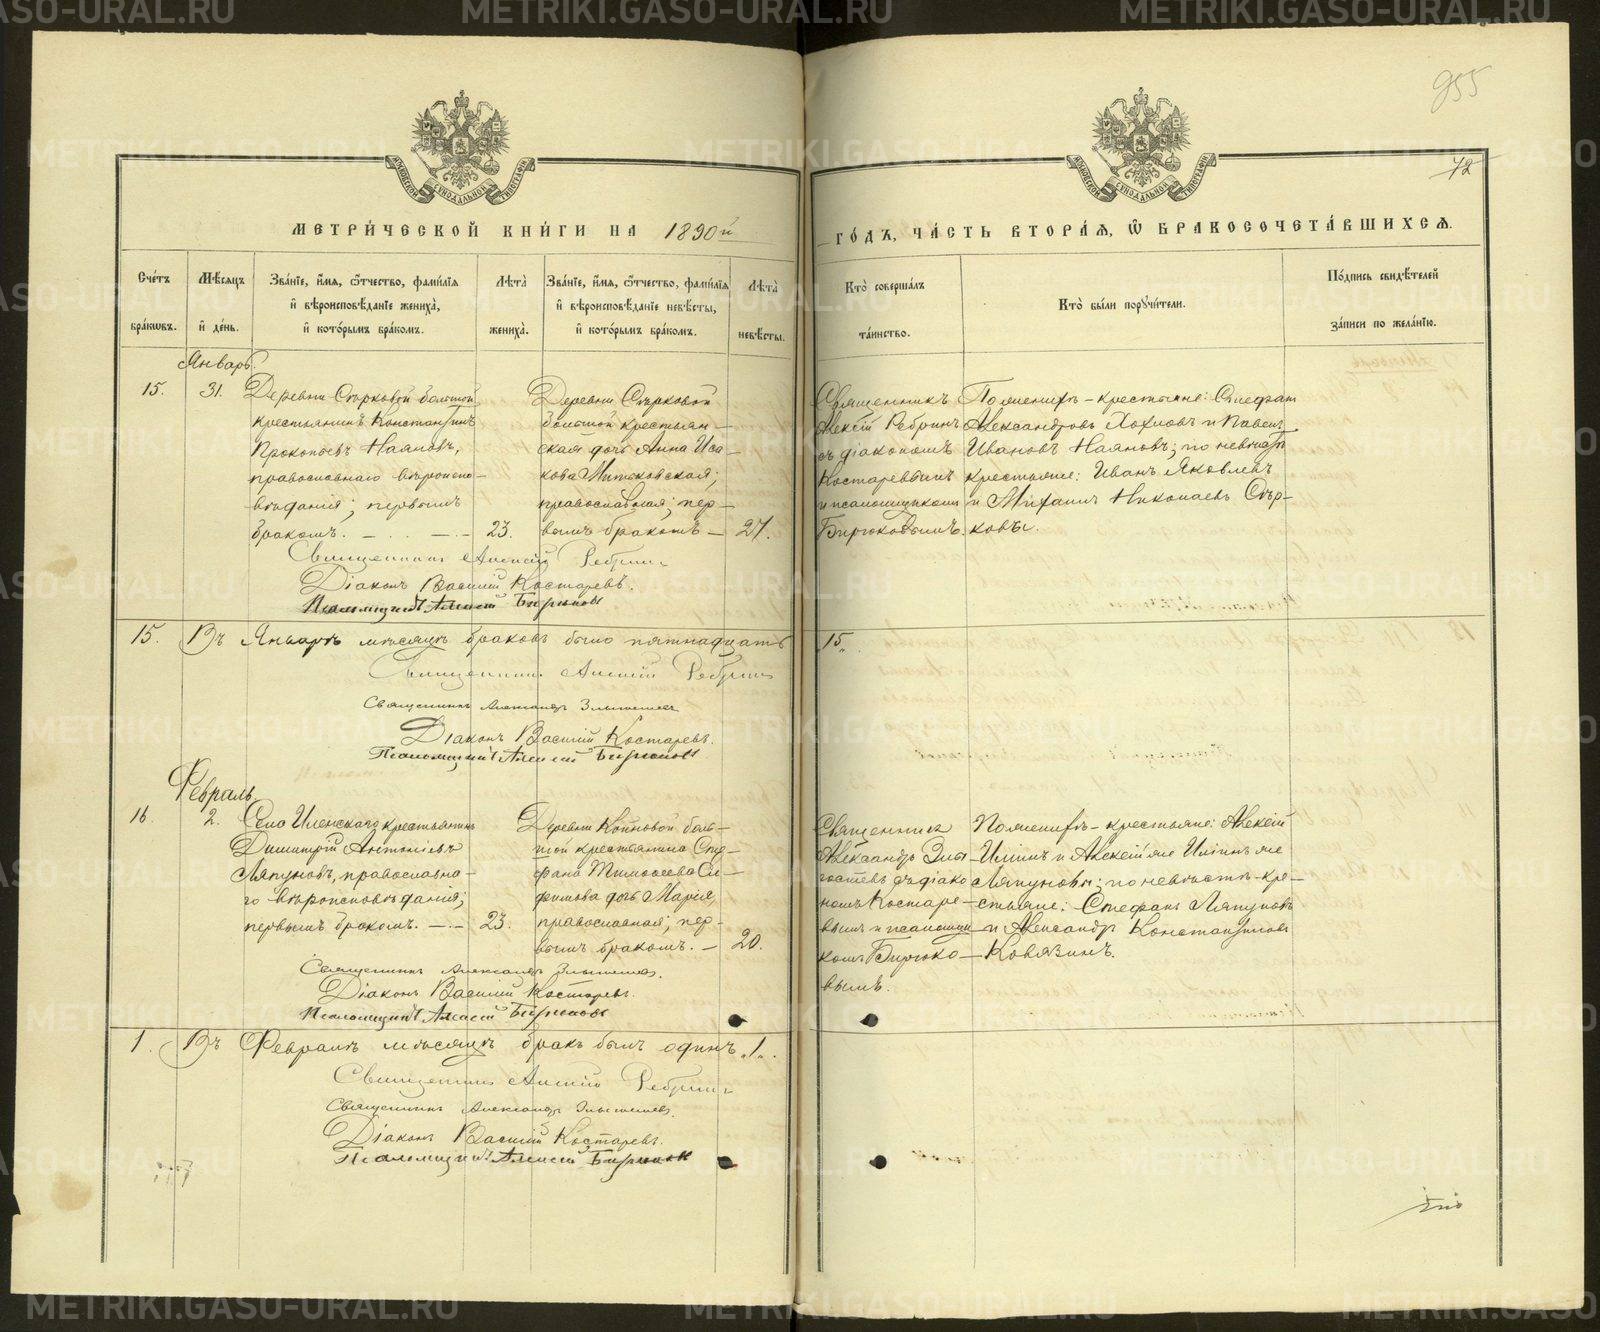 955
72
МОСКОВСКОЙ СѴНОДАЛЬНОЙ ТИПОГРАФІИ
МОСКОВСКОЙ СѴНОДАЛЬНОЙ ТИПОГРАФІИ
МЕТРИ́ЧЕСКОЙ КНИ́ГИ НА 1890й
ГО́ДЪ, ЧА́СТЬ ВТОРА́Я, Ѿ БРАКОСОЧЕТА́ВШИХСЯ.
Сче́тъ бра́ковъ.
Мѣ́сяцъ и҆ де́нь.
Зва́нїе, и҆́мя, ѻ҆́тчество, фами́лїя и҆ вѣроисповѣ́данїе жениха̀, и҆ кото́рымъ бра́комъ.
Лѣта̀ жениха̀.
Зва́нїе, и҆́мя, ѻ҆́тчество, фами́лїя и҆ вѣроисповѣ́данїе невѣ́сты, и҆ кото́рымъ бра́комъ.
Лѣта̀ невѣ́сты.
Кто̀ соверша́лъ та́инство.
Кто̀ бы́ли порꙋчи́тели.
По́дпись свидѣ́телей за́писи по жела́нїю.
Январь.
15.
31.
Деревни Сѣрковой большой
крестьянинъ Константинъ
Прокопьевъ Наяновъ,
православнаго вѣроиспо-
вѣданія; первымъ
бракомъ.
23.
Деревни Сѣрковой
большой крестьян-
ская дочь Анна Иса-
кова Митьковская;
православная; пер-
вымъ бракомъ
27.
Священникъ
Алексій Ребринъ
съ діакономъ
Костаревымъ
и псаломщикомъ
Бирюковымъ.
По женихѣ - крестьяне: Стефанъ
Александровъ Хохловъ и Павелъ
Ивановъ Наяновъ; по невѣстѣ
крестьяне: Иванъ Яковлевъ
и Михаилъ Николаевъ Сѣр-
ковы.
Священникъ Алексій Ребринъ
Діаконъ Василій Костаревъ.
Псаломщикъ Алексій Бирюковъ
15. Въ Январѣ мѣсяцѣ браковъ было пятнадцать 15.
Священникъ Алексій Ребринъ
Священникъ Александръ Злыгостевъ
Діаконъ Василій Костаревъ.
Псаломщикъ Алексій Бирюковъ
Февраль.
16.
2.
Села Иленскаго крестьянинъ
Димитрій Антоніевъ
Ляпуновъ, православна-
го вѣроисповѣданія;
первымъ бракомъ.
23.
Деревни Коптовой боль-
шой крестьянина Сте-
фана Тимоѳеева Си-
дочь Марія,
православная; пер-
вымъ бракомъ.
20.
Священникъ
Александръ Злы-
гостевъ съ діако-
номъ Костаре-
вымъ и псаломщи-
комъ Бирюко-
вымъ.
По женихѣ - крестьяне: Алексій
Илiинъ и Алексій же Илiинъ же
Ляпуновы; по невѣстѣ - кре-
стьяне: Стефанъ Ляпуновъ
и Александръ Константиновъ
Ковязинъ.
Священникъ Александръ Злыгостевъ.
Діаконъ Василій Костаревъ.
Псаломщикъ Алексій Бирюковъ
1. Въ Февралѣ мѣсяцѣ бракъ былъ одинъ „1„.
Священникъ Алексій Ребринъ
Священникъ Александръ Злыгостевъ.
Діаконъ Василій Костаревъ.
Псаломщикъ Алексій Бирюковъ
METRIKI.GASO-URAL.RU